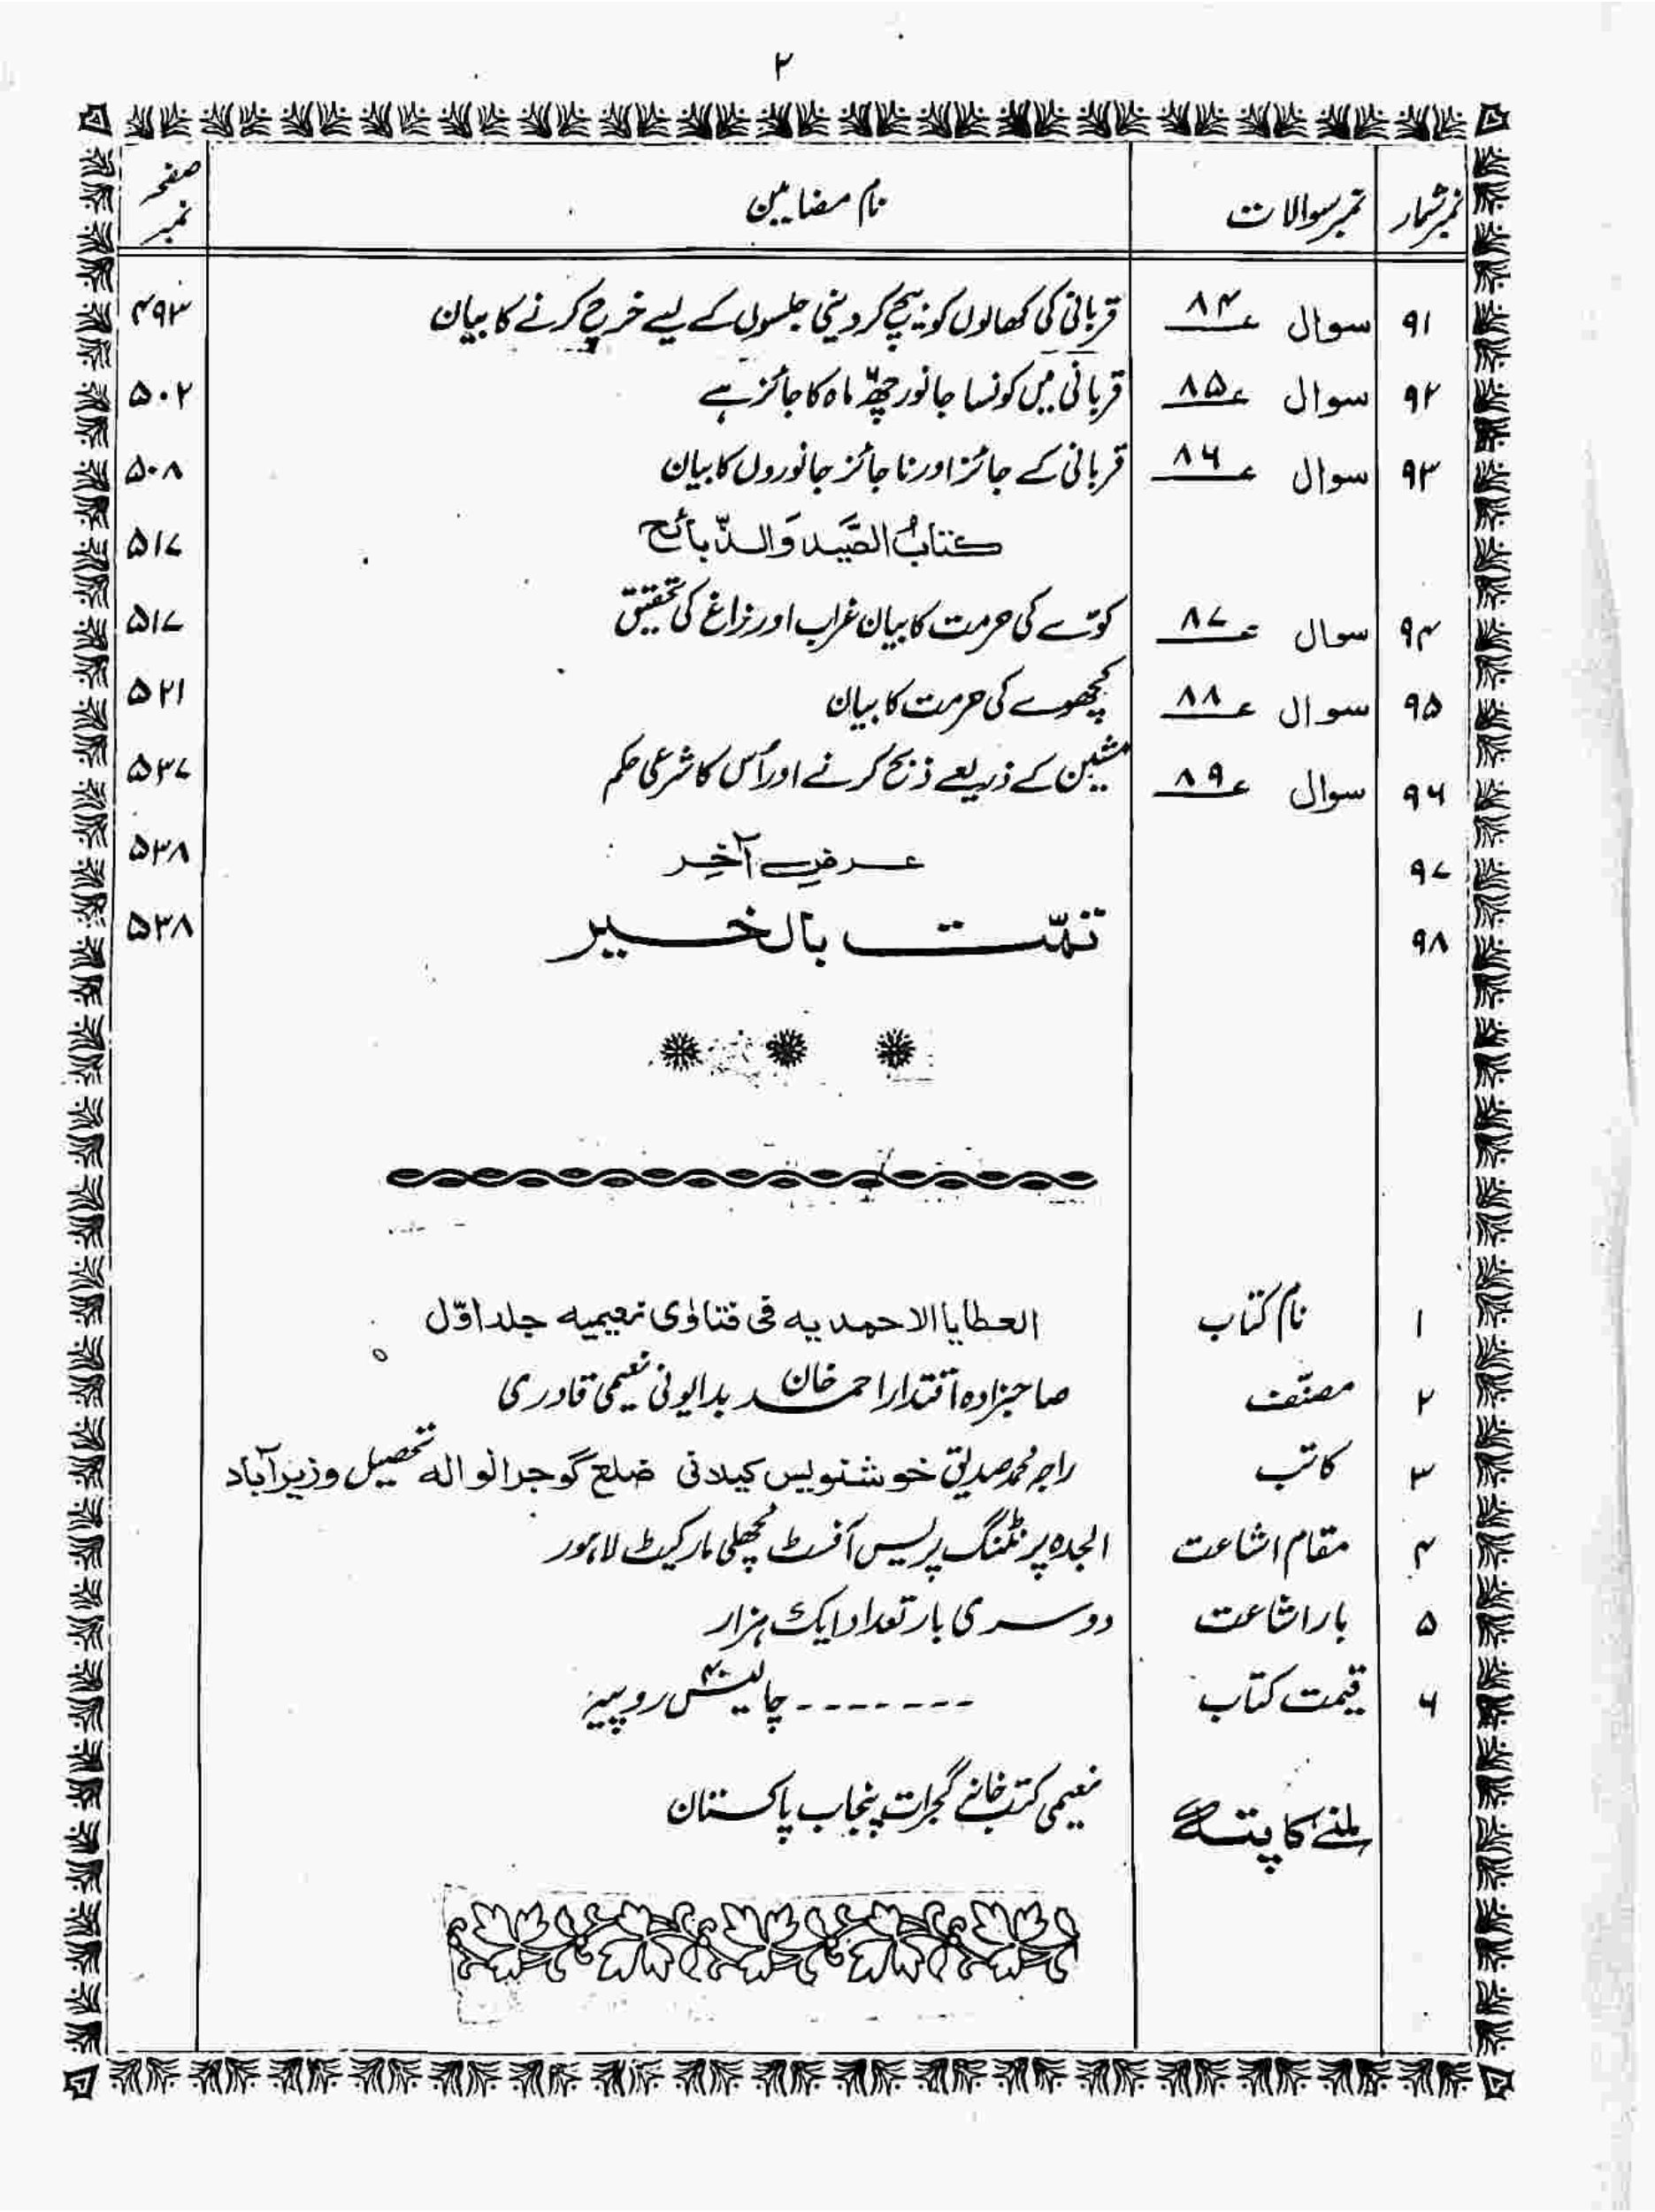 ۲
نمبر شمار نمبر سوالات نام مضامین صفحہ نمبر
۹۱ سوال ع ۸۴ قربانی کی کھالوں کو بیچ کر دینی جلسوں کے لیے خرچ کرنے کا بیان ۴۹۳
۹۲ سوال ع ۸۵ قربانی میں کونسا جانور چھ ماہ کا جائز ہے ۵۰۲
۹۳ سوال ع ۸۶ قربانی کے جائز اور نا جائز جانوروں کا بیان ۵۰۸
کتابُ الصَّید وَالذّبائح ۵۱۷
۹۴ سوال ع ۸۷ کوّے کی حرمت کا بیان غراب اور زاغ کی تحقیق ۵۱۷
۹۵ سوال ع ۸۸ کچھوے کی حرمت کا بیان ۵۲۱
۹۶ سوال ع ۸۹ مشین کے ذریعے ذبح کرنے اور اُس کا شرعی حکم ۵۳۷
۹۷ عرضِ آخِر ۵۳۸
۹۸ تمّت بالخیر ۵۳۸
۱ نام کتاب العطایا الاحمدیہ فی فتاوٰی نعیمیہ جلد اوّل
۲ مصنّف صاحبزادہ اقتدار احمد خان بدایونی نعیمی قادری
۳ کاتب راجہ محمد صدیق خوشنویس کیلانی ضلع گوجرانوالہ تحصیل وزیرآباد
۴ مقام اشاعت الجدہ پرنٹنگ پریس آفسٹ مچھلی مارکیٹ لاہور
۵ بار اشاعت دوسری بار تعداد ایک ہزار
۶ قیمت کتاب ------- چالیس ۴۰ روپیہ
ملنے کا پتہ نعیمی کتب خانے گجرات پنجاب پاکستان